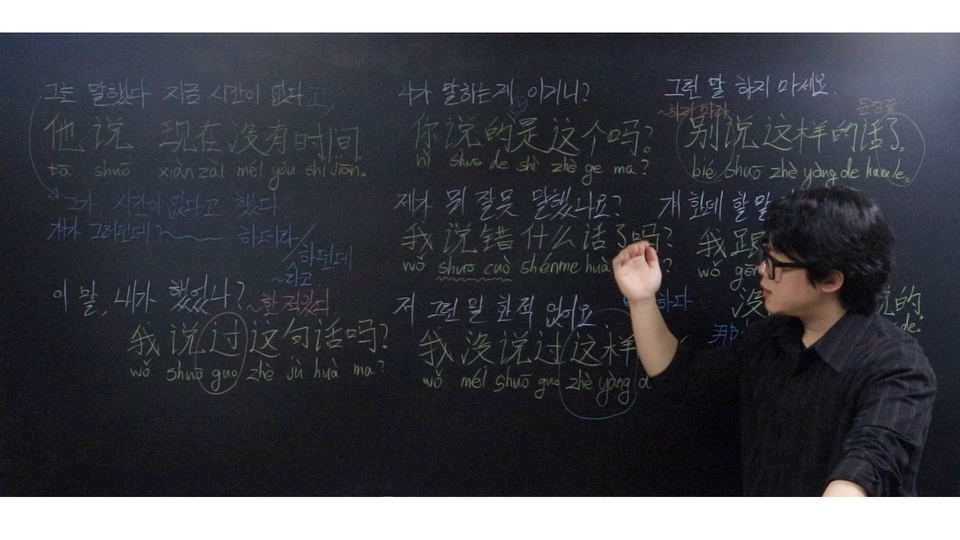 그는 말했다 지금 시간이 없다고,
他 说 现在没有时间.
tā shuō xiàn zài méi yǒu shí jiān.
그가 시간이 없다고 했다
걔가 그러던데 하더라
하던데
~라고
이 말, 내가 했었나?
~한 적있다
我 说 过 这 句 话 吗?
wǒ shuō guo zhè jù huà ma?
네가 말하는게 이거니?
你说的是这个吗?
nǐ shuō de shì zhè ge ma?
제가 뭐 잘못 말했나요?
我 说 错 什么 话 了吗?
wǒ shuō cuò shénme huà ?
저 그런 말 한적 없어요
我 没 说 过 这样
wǒ méi shuō guo zhè yàng d
그런 말 하지 마세요.
~하지 마라
别说这样的话了.
bié shuō zhè yàng de huà le.
걔 한테 할 말
我 跟
wǒ gēn
没 说的
de.